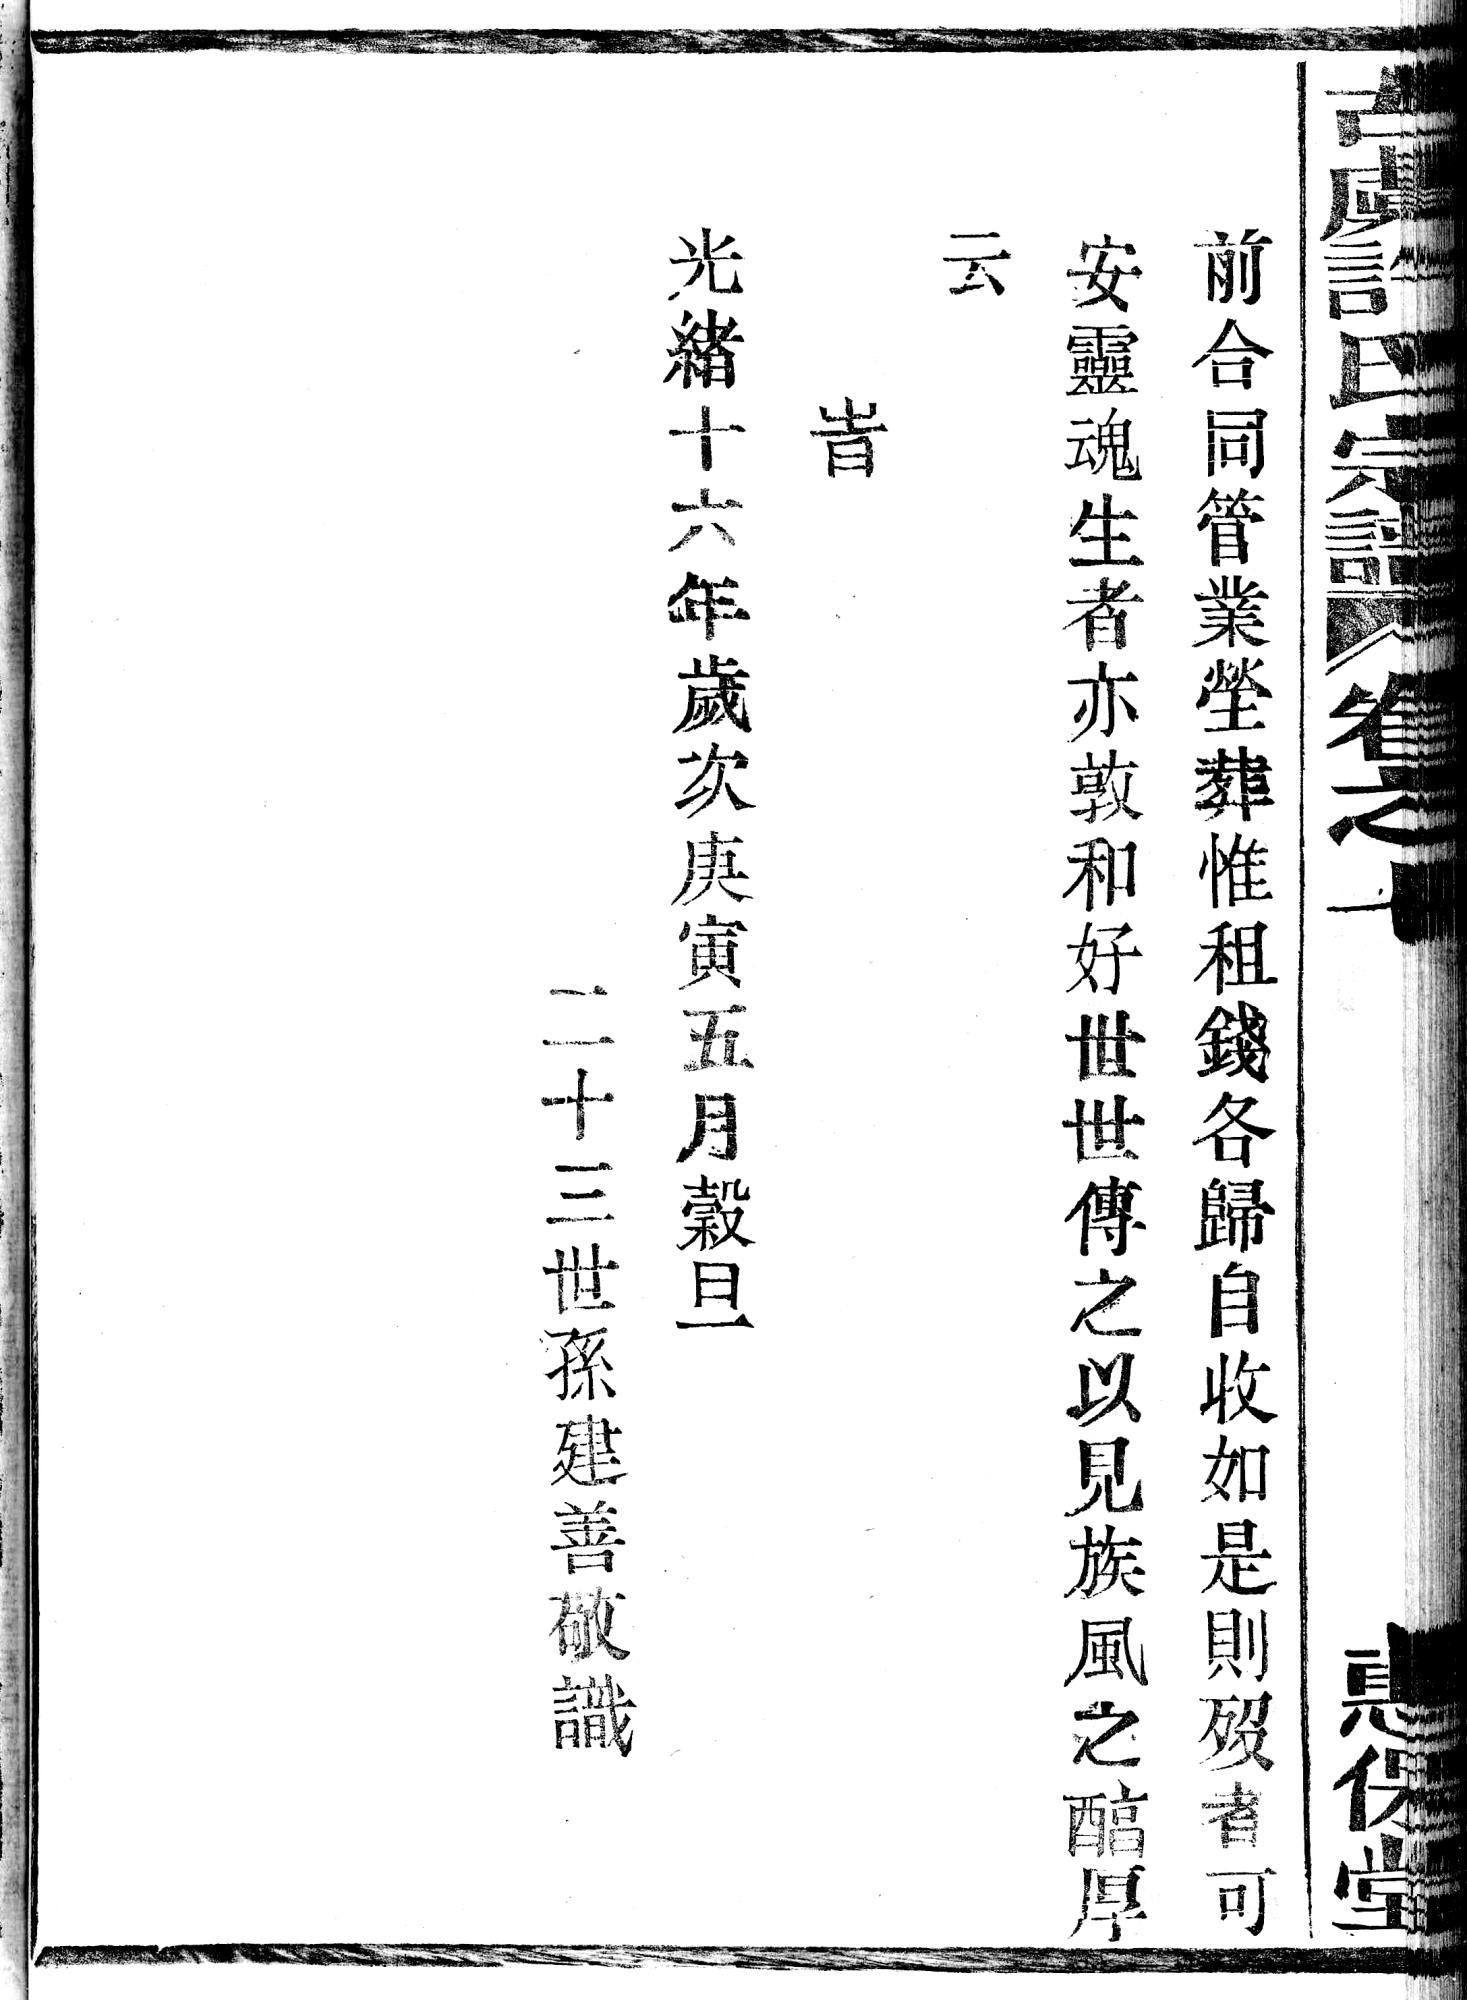 古虞許氏宗譜 卷之
惠保堂
前合同管業塋葬惟租錢各歸自收如是則歿者可
安靈魂生者亦敦和好世世傳之以見族風之醕厚
云
旹
光緒十六年歲次庚寅五月穀旦
二十三世孫建善敬識